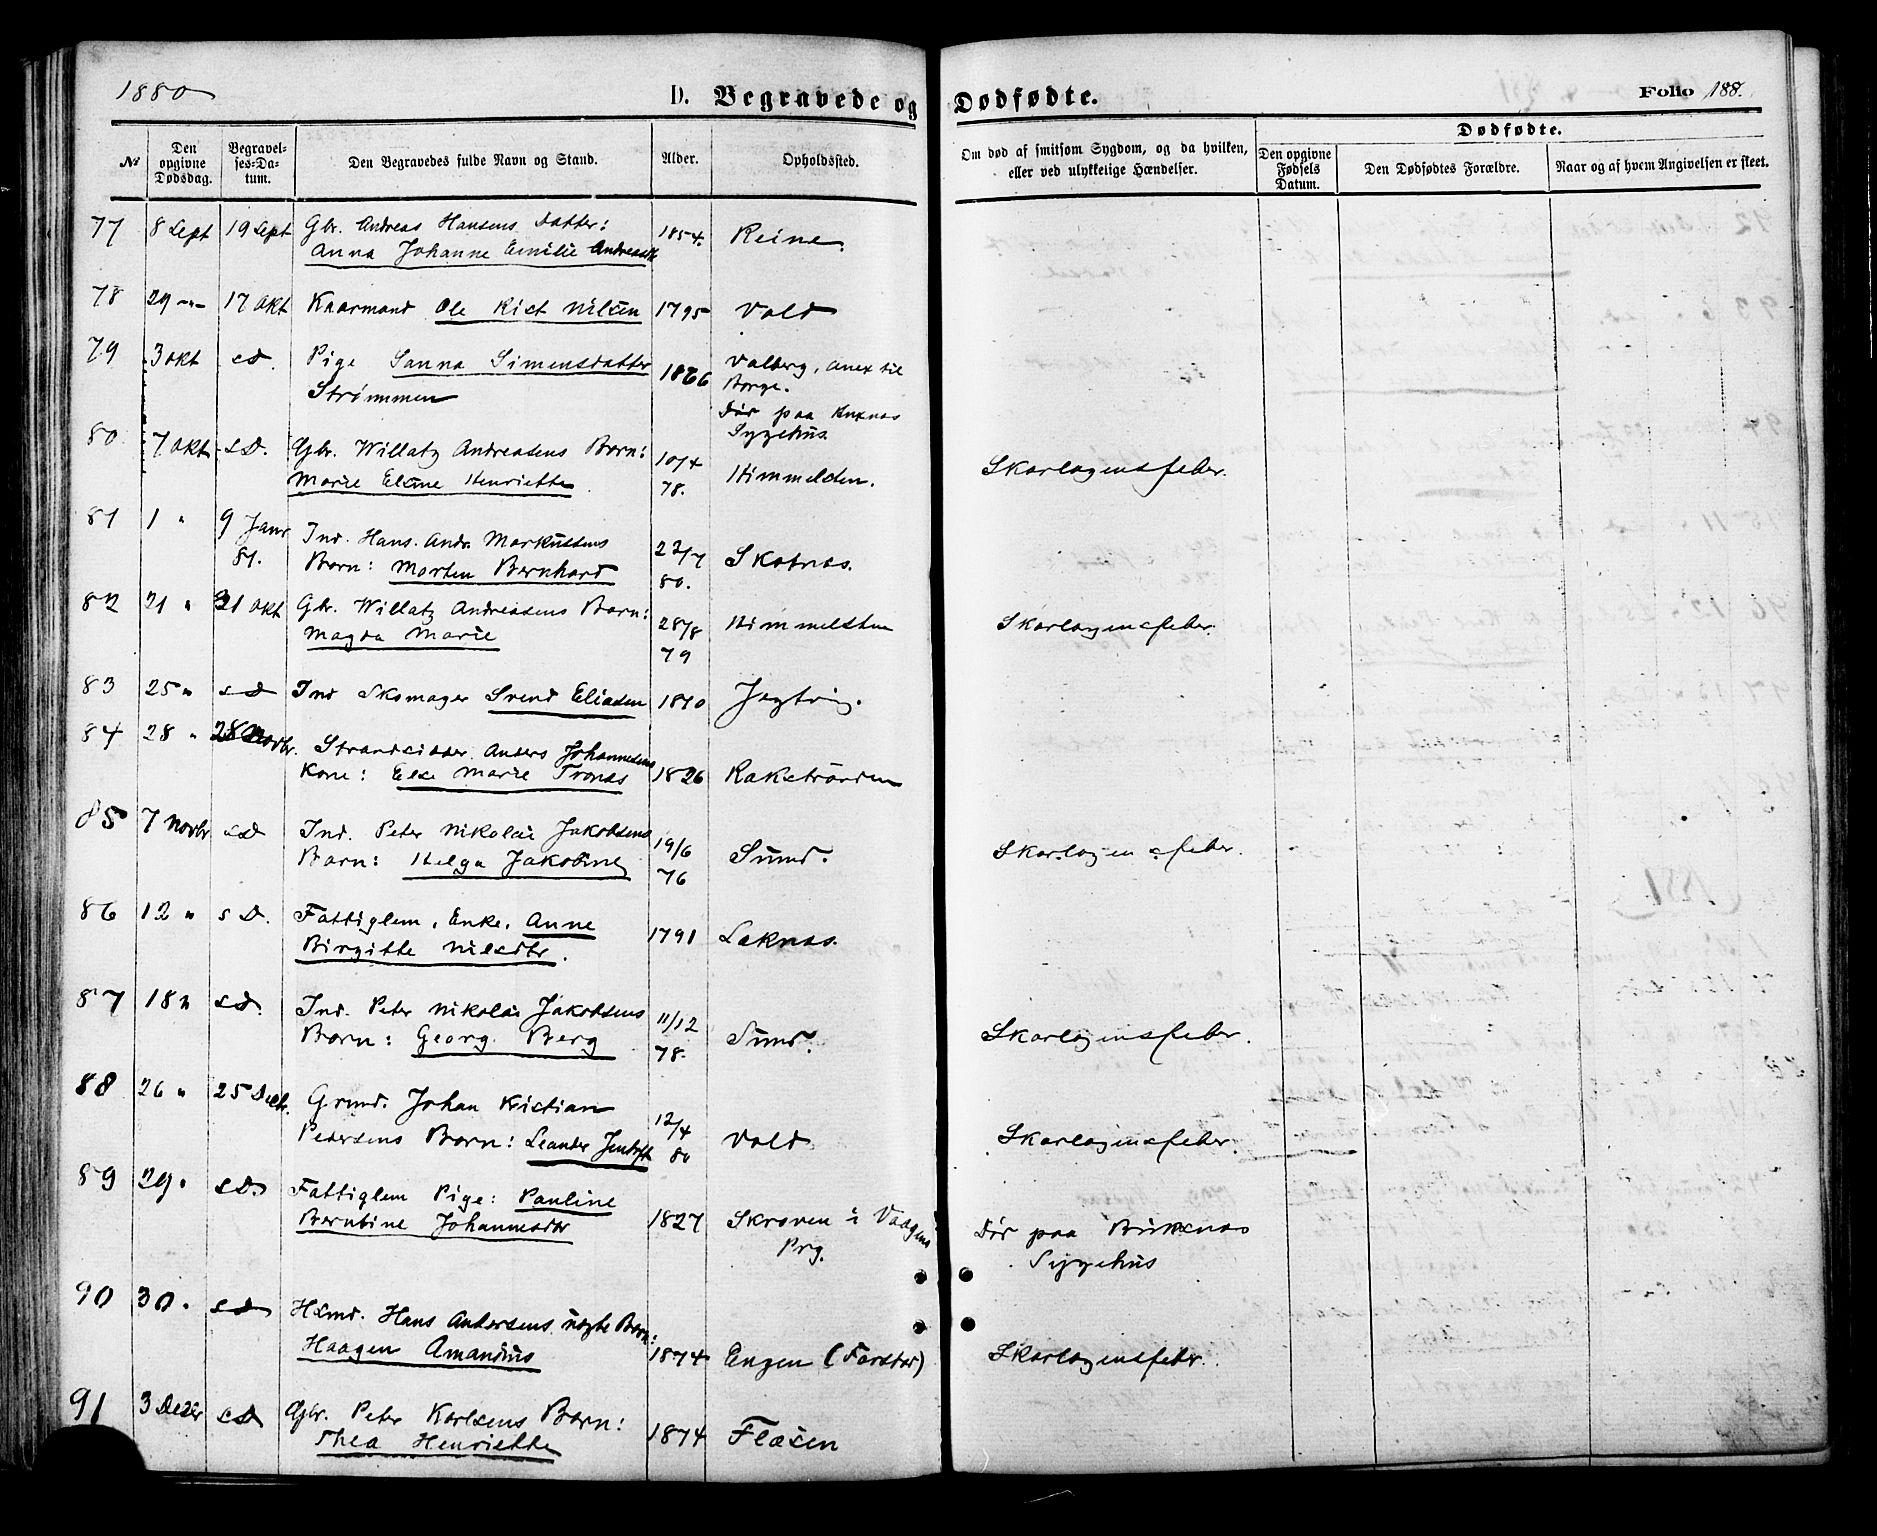 1880
D. Begravede og Dødfødte.
Folio 188.
№
Den opgivne Dødsdag.
Begravelses-Datum.
Den Begravedes fulde Navn og Stand.
Alder.
Opholdssted.
Om død af smitsom Sygdom, og da hvilken, eller ved ulykkelige Hændelser.
Dødfødte.
Den opgivne Fødsels Datum.
Den Dødfødtes Forældre.
Naar og af hvem Angivelsen er skeet.
77 8 Sept 19 Sept Gbr. Andreas Hansens Datter: 1854. Reine.
Anna Johanne Emilie
78 29 -"- 17 Okt Kaarmand Ole Rist Nilsen 1795 Vold
79 3 Okt s.D. Pige Sanna Simensdatter 1866 Valberg, Anex til
Strømmen Borge.
Dør paa
Sygehus.
80 7 Okt s.D. Gbr. Willatz Andreasens Barn: 10/4 78. Himmelsten. Skarlagensfeber.
Marie Elene Henriette
81 1 " 9 Janr 81. Ind. Hans. Andr. Markussens 22/7 80. Skotnæs.
Barn: Morten Bernhard
82 21 " 21 Okt Gbr. Willatz Andreasens Barn: 28/8 79 Himmelsten Skarlagensfeber.
Magda Marie
83 25 " s.D Ind Skomager Svend Eliasen 1810 Jagtvig.
84 28 " 28 Novbr. Strandsidder Anders Johannesens
Kone: Else Marie Tronds 1826 Rakstranden
85 7 Novbr s.D Ind. Peter Nikolai Jakobsens 19/6 76 Sund. Skarlagensfeber.
Barn: Helga Jakobine
86 12 " s.D. Fattiglem, Enke, Anne 1791 Leknæs.
Birgitte Nilsdtr.
87 18 " s.D. Ind. Peter Nikolai Jakobsens 11/12 78. Sund. Skarlagensfeber.
Barn: Georg Berg
88 26 " 25 Decbr. Grund. Johan Kistian 12/4 80 Vold Skarlagensfeber.
Pedersens Barn: Leander
89 29 " s.D. Fattiglem Pige: Pauline 1827 Skroven i Vaagens Prg. Dør paa Buksnæs
Bernbine Johannesdtr Sygehus
90 30 " s.D Husmd. Hans Andersens uægte Barn: 1874 Engen (Farstad) Skarlagensfeber.
Haagen Amandus
91 3 Dezbr s.D Gbr. Peter Karlsens Barn: 1874 Flæsen
Thea Henriette